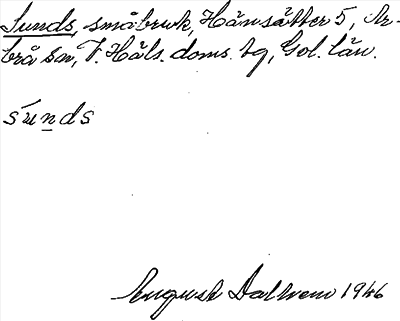 Sunds, småbruk, Hänsätter 5, Ar-
brå sn, V. Häls. doms. tg, Gvl. län.
súnds
August Dalhem 1946